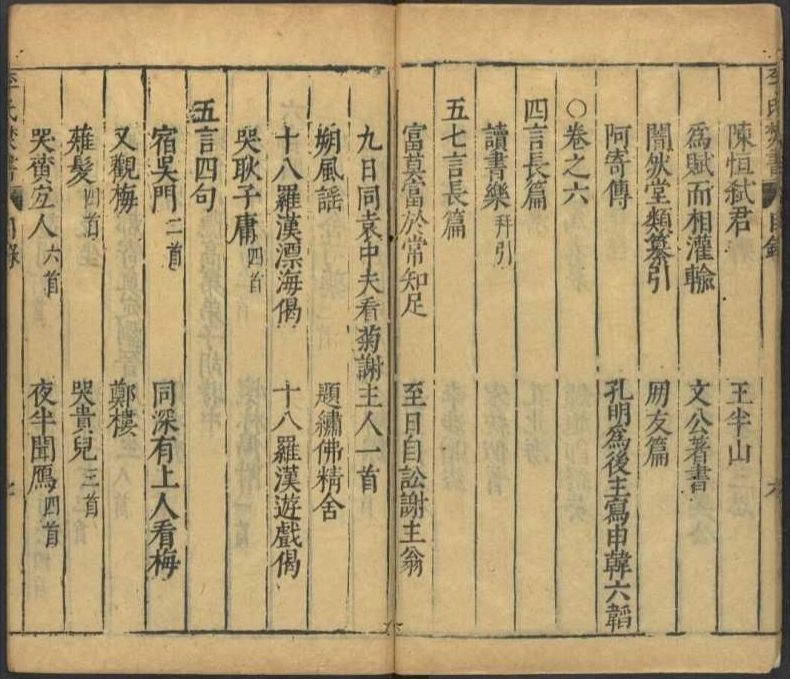 李氏焚書 目錄 六
陳恒弒君 王半山
為賦而相灌輸 文公著書
闇然堂類纂引 朋友篇
阿寄傳 孔明為後主寫申韓六韜
○卷之六
四言長篇
讀書樂 并引
五七言長篇
富莫富於常知足 至日自訟謝主翁
九日同袁中夫看菊謝主人一首
朔風謠 題繡佛精舍
十八羅漢漂海偈 十八羅漢遊戲偈
哭耿子庸 四首
五言四句
宿吳門 二首 同深有上人看梅
又觀梅 鄭樓
薙髮 四首 哭貴兒 三首
哭黃宜人 六首 夜半聞鴈 四首
李氏焚書 目錄 七